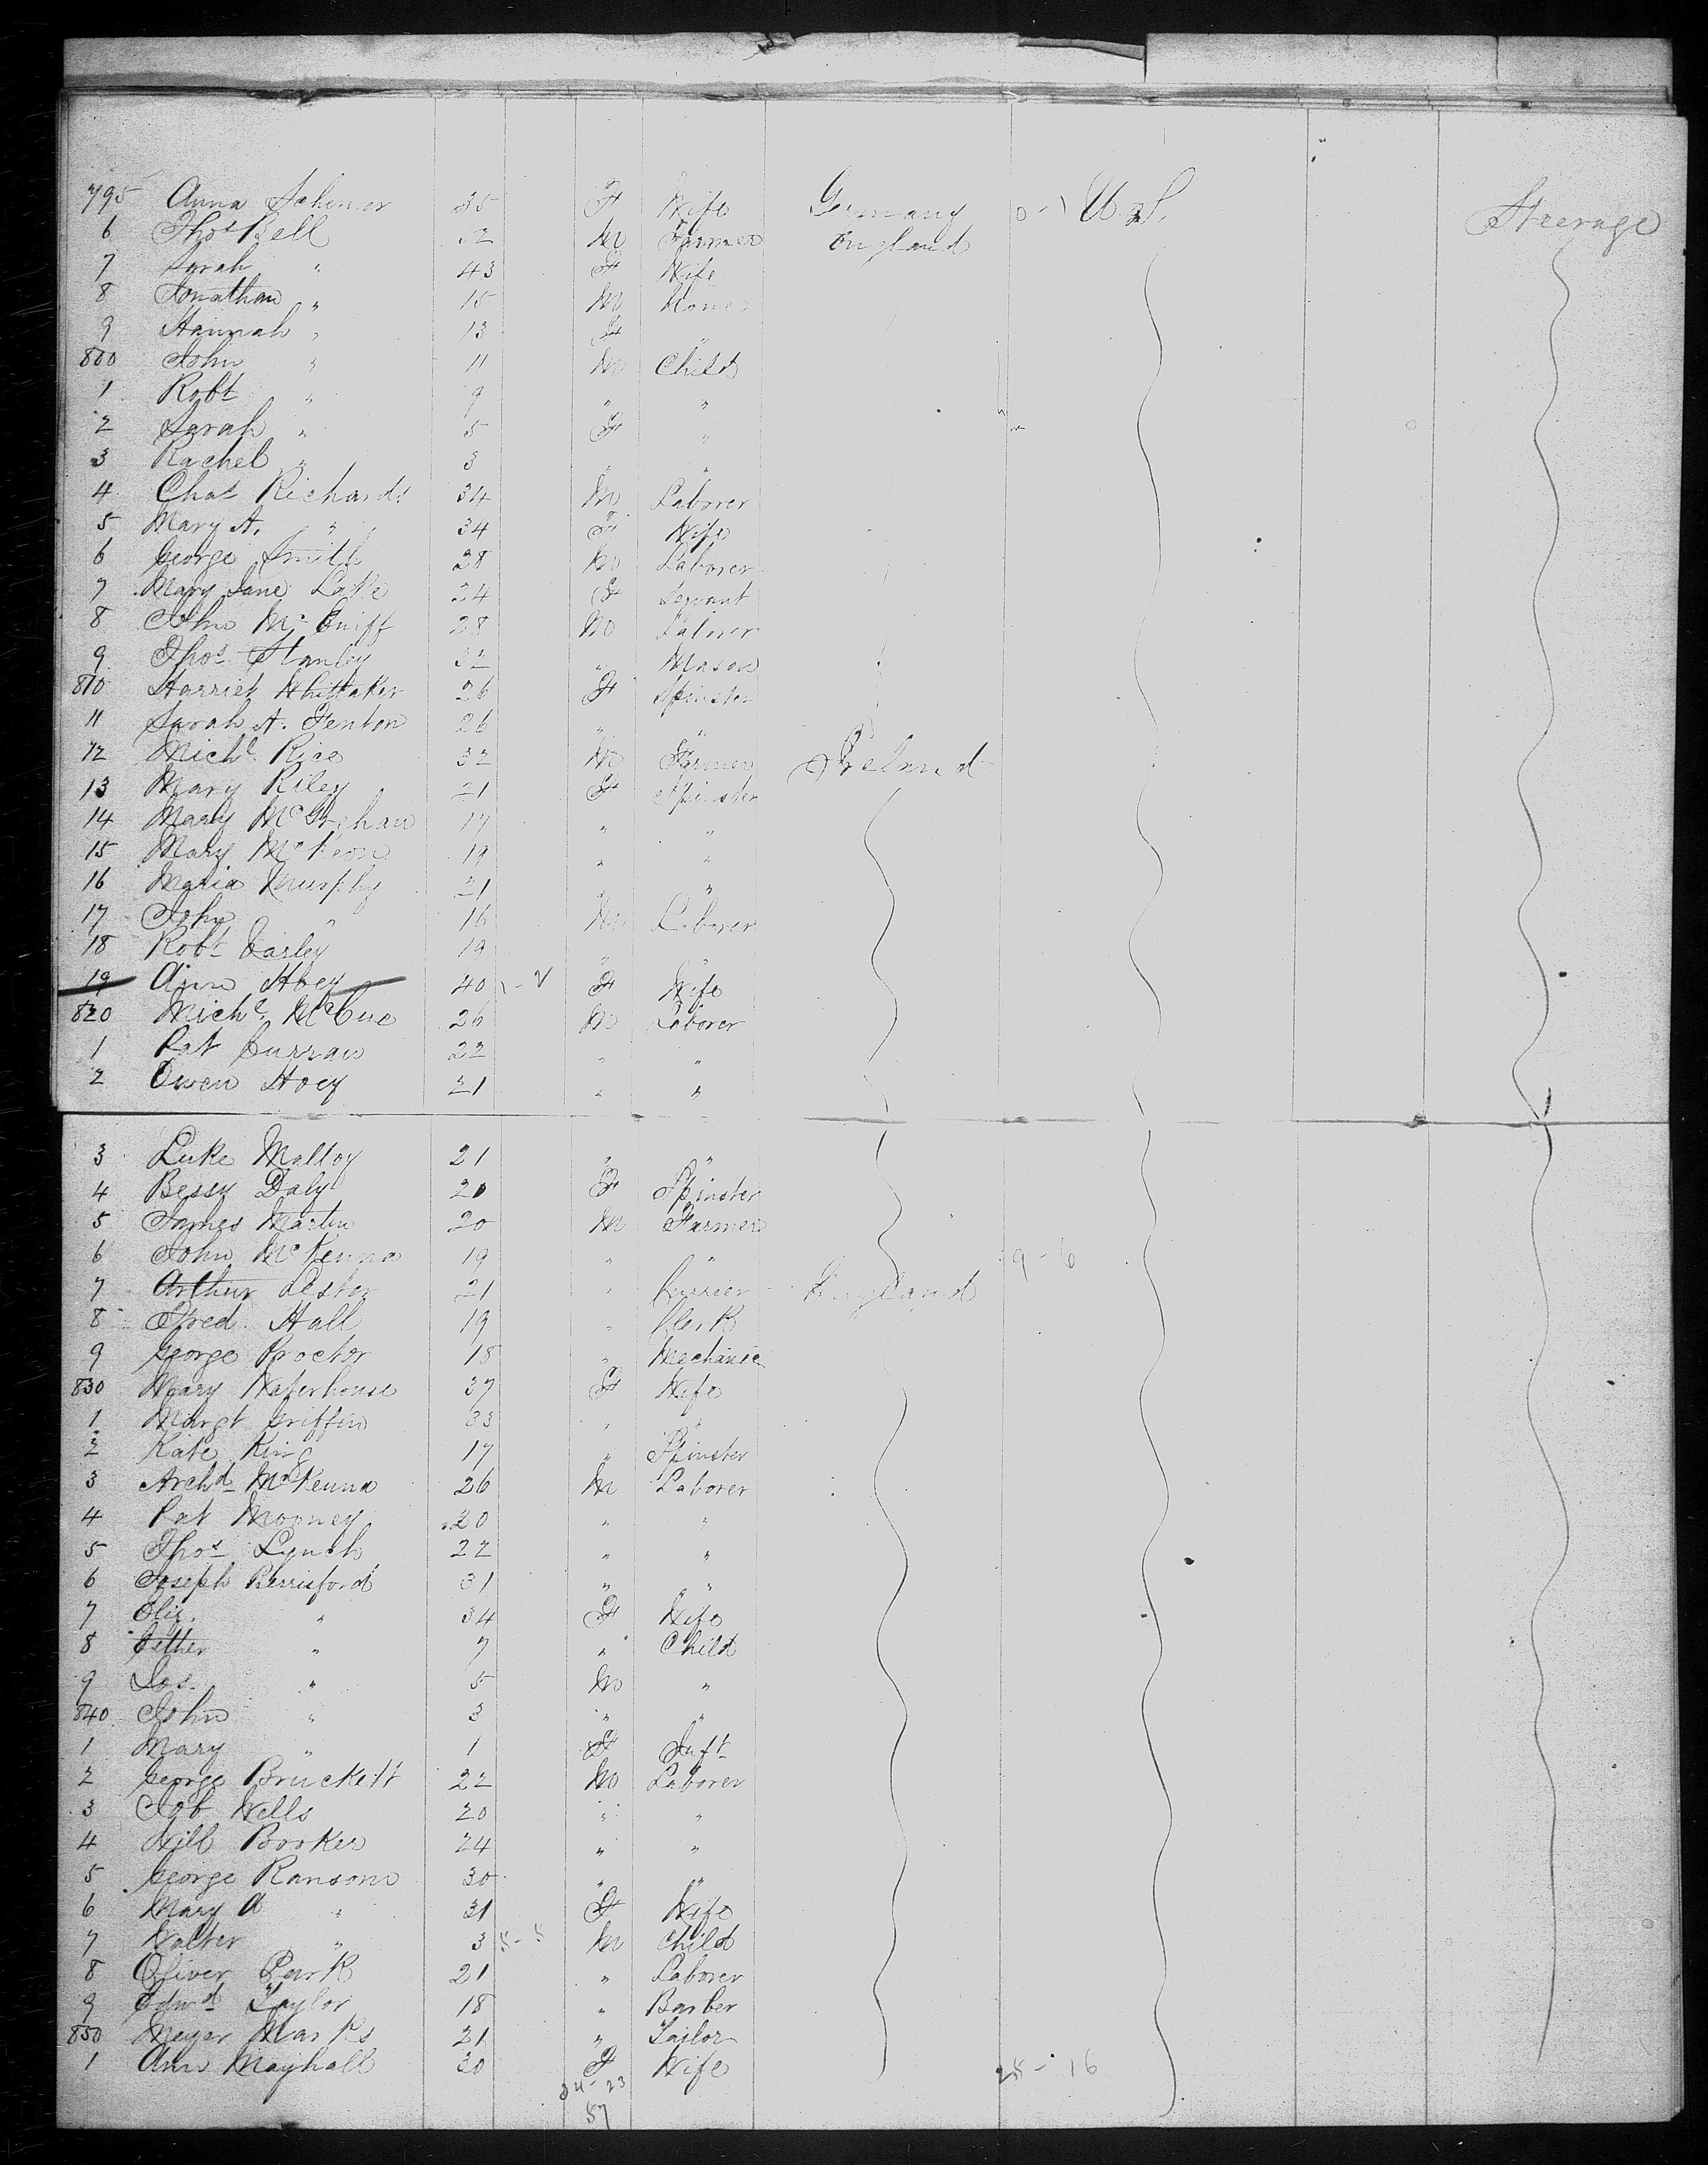 795 Anna 35 F Wife Germany U.S. Steerage
6 Thos Bell 52 M Farmer England
7 Sarah " 43 F Wife
8 Jonathan " 15 M None
9 Hannah " 13 F "
800 John " 11 M Child
1 Robt " 9 " "
2 Sarah " 5 F "
3 Rachel " 3 " "
4 Chas Richards 34 M Laborer
5 Mary A. " 34 F Wife
6 George Smith 28 M Laborer
7 Mary Jane Lake 24 F Servant
8 John 28 M Laborer
9 Thos Stanley 32 " Mason
810 Harriet Whittaker 26 F Spinster
11 Sarah A. Fenton 26 " "
12 Michl Rice 32 M Farmer Ireland
13 Mary Riley 21 F Spinster
14 Mary 17 " "
15 Mary McKeon 19 " "
16 Maria Murphy 21 " "
17 John " 16 M Laborer
18 Robt 19 " "
19 Ann Hoey 40 F Wife
820 Michl McCue 26 M Laborer
1 Pat Curran 22 " "
2 Owen Hoey 21 " "
3 Luke Malloy 21 " "
4 Bessy Daly 20 F Spinster
5 James Martin 20 M Farmer
6 John McKenna 19 " " 9 - 6
7 Arthur Lester 21 " Currier England
8 Fred. Hall 19 " Clerk
9 George Proctor 18 " Mechanic
830 Mary Waterhouse 37 F Wife
1 Margt Griffin 33 " "
2 Kate King 17 " Spinster
3 Archd McKenna 26 M Laborer
4 Pat Mooney 20 " "
5 Thos Lynch 22 " "
6 Joseph Berrisford 31 " "
7 Eliz. " 34 F Wife
8 Esther " 7 " Child
9 Jos. " 5 M "
840 John " 3 " "
1 Mary " 1 F Inft
2 George Bruckett 22 M Laborer
3 Job Wells 20 " "
4 Will Booker 24 " "
5 George Ransom 30 " "
6 Mary A " 31 F Wife
7 Walter " 3 M Child
8 Oliver Park 21 " Laborer
9 Edwd Taylor 18 " Barber
850 Meyer Marks 21 " Tailor
1 Ann Mayhall 30 F Wife 25 - 16
34 - 23
57